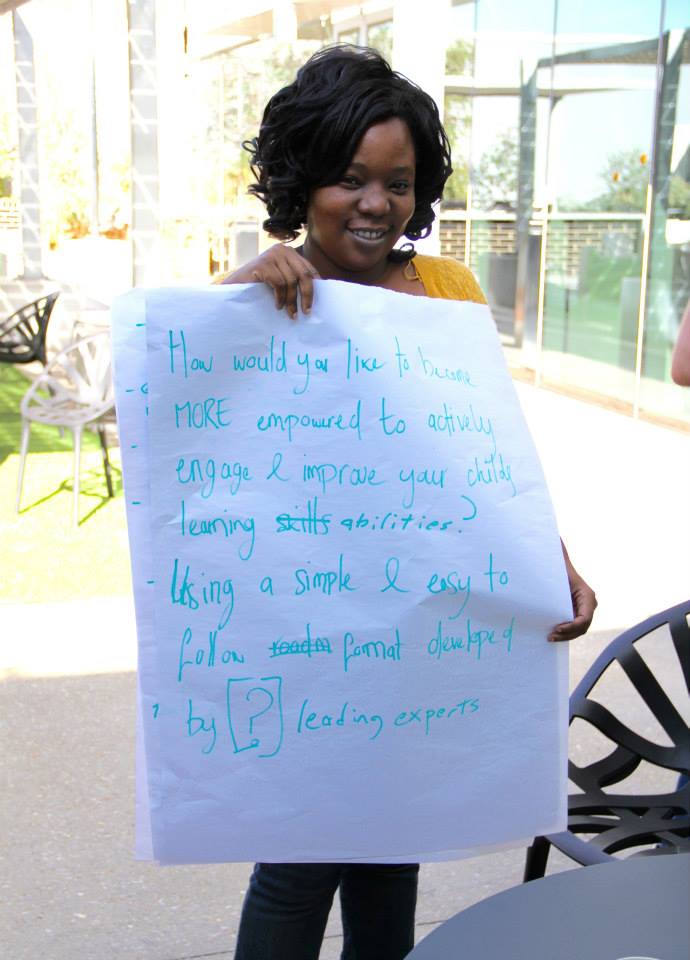 How would you like to become
MORE empowered to actively
engage & improve your childs
learning skills abilities?
- Using a simple & easy to
follow roadm format developed
by [?] leading experts